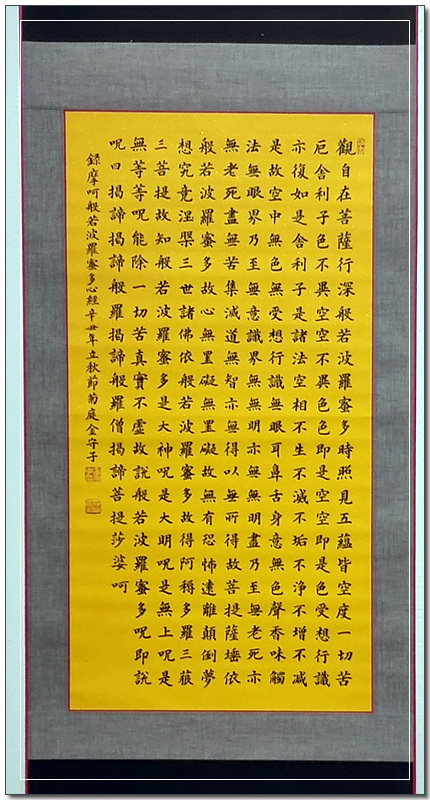 觀自在菩薩行深般若波羅蜜多時照見五蘊皆空度一切苦
厄舍利子色不異空空不異色色即是空空即是色受想行識
亦復如是舍利子是諸法空相不生不滅不垢不淨不增不減
是故空中無色無受想行識無眼耳鼻舌身意無色聲香味觸
法無眼界乃至無意識界無無明亦無無明盡乃至無老死亦
無老死盡無苦集滅道無智亦無得以無所得故菩提薩埵依
般若波羅蜜多故心無罣礙無罣礙故無有恐怖遠離顛倒夢
想究竟涅槃三世諸佛依般若波羅蜜多故得阿耨多羅三藐
三菩提故知般若波羅蜜多是大神呪是大明呪是無上呪是
無等等呪能除一切苦真實不虛故說般若波羅蜜多呪即說
呪曰揭諦揭諦般羅揭諦般羅僧揭諦菩提莎婆呵
錄摩呵般若波羅蜜多心經辛丑年立秋節菊庭金守子